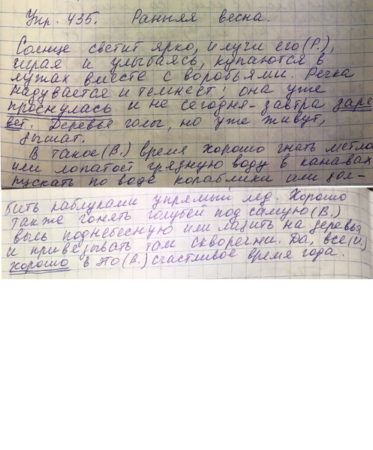 Упр. 435. Ранняя весна.
Солнце светит ярко, и лучи его (Р.),
играя и улыбаясь, купаются в
лужах вместе с воробьями. Речка
надувается и темнеет: она уже
проснулась и не сегодня-завтра заре-
вет. Деревья голы, но уже живут,
дышат.
В такое (В.) время хорошо гнать метлой
или лопатой грязную воду в канавах,
пускать по воде кораблики или дол-
бить каблуками упрямый лед. Хорошо
также гонять голубей под самую (В.)
высь поднебесную или лазить на деревья
и привязывать там скворечни. Да, все (И)
хорошо в это (В.) счастливое время года.